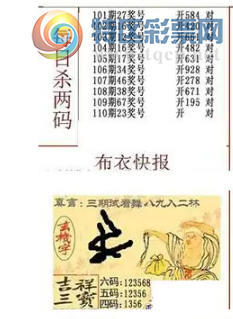 101期27奖号 开584 对
104期16奖号 开482 对
105期17奖号 开631 对
106期34奖号 开928 对
107期46奖号 开278 对
108期38奖号 开671 对
109期67奖号 开195 对
110期23奖号 开 对
日杀两码
布衣快报
真言：三期试着舞八九入二林
玄机字
吉祥
三宝
六码:123568
五码:12356
四码:1356